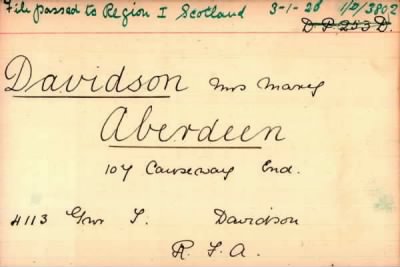 File passed to Region I Scotland 3-1-28 1/D/3802
D.P. 253 D.
Davidson Mrs Mary
Aberdeen
107 Causeway End.
4113 Gnr T. Davidson
R. F. A.